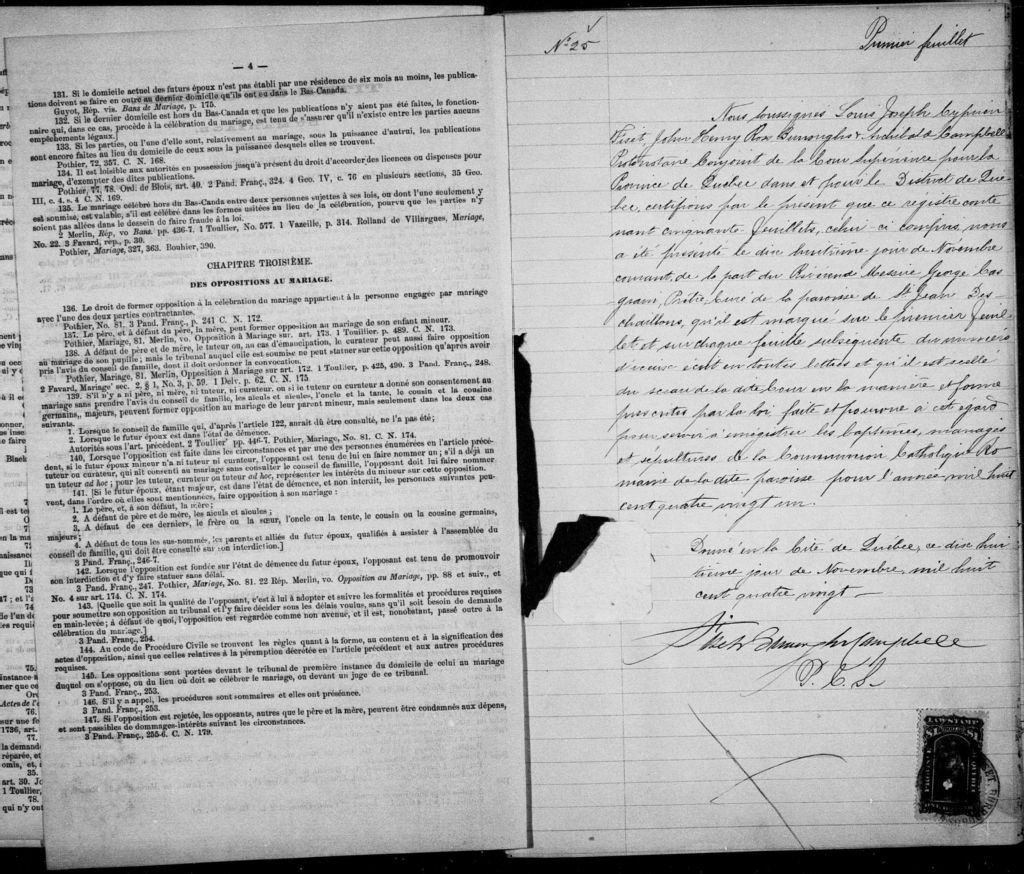 — 4 —
131. Si le domicile actuel des futurs époux n'est pas établi par une résidence de six mois au moins, les publica-
tions doivent se faire en outre au dernier domicile qu'ils ont eu dans le Bas-Canada.
Guyot, Rép. vis. Bans de Mariage, p. 175.
132. Si le dernier domicile est hors du Bas-Canada et que les publications n'y aient pas été faites, le fonction-
naire qui, dans ce cas, procède à la célébration du mariage, est tenu de s'assurer qu'il n'existe entre les parties aucuns
empêchements légaux.]
133. Si les parties, ou l'une d'elle sont, relativement au mariage, sous la puissance d'autrui, les publications
sont encore faites au lieu du domicile de ceux sous la puissance desquels elles se trouvent.
Pothier, 72, 357. C. N. 168.
134. Il est loisible aux autorités en possession jusqu'à présent du droit d'accorder des licences ou dispenses pour
mariage, d'exempter des dites publications.
Pothier, 77, 78. Ord. de Blois, art. 40. 2 Pand. Franç., 324. 4 Geo. IV, c. 76 en plusieurs sections, 35 Geo.
III, c. 4, s. 4 C. N. 169.
135. Le mariage célébré hors du Bas-Canda entre deux personnes sujettes à ses lois, ou dont l'une seulement y
est soumise, est valable, s'il est célébré dans les formes usitées au lieu de la célébration, pourvu que les parties n'y
soient pas allées dans le dessein de faire fraude à la loi.
2 Merlin, Rép, vo Bans. pp. 436-7. 1 Toullier, No. 577. 1 Vazeille, p. 314. Rolland de Villargues, Mariage,
No. 22. 3 Favard, rép., p. 30.
Pothier, Mariage, 327, 363. Bouhier, 390.
CHAPITRE TROISIÈME.
DES OPPOSITIONS AU MARIAGE.
136. Le droit de former opposition à la célébration du mariage appartient à la personne engagée par mariage
avec l'une des deux parties contractantes.
Pothier, No. 81. 3 Pand. Franç., p. 241 C. N. 172.
137. Le père, et à défaut du père, la mère, peut former opposition au mariage de son enfant mineur.
Pothier, Mariage, 81. Merlin, vo. Opposition à Mariage sur. art. 173. 1 Touillier. p. 489. C. N. 173.
138. A défaut de père et de mère, le tuteur ou, au cas d'émancipation, le curateur peut aussi faire opposition
au mariage de son pupille ; mais le tribunal auquel elle est soumise ne peut statuer sur cette opposition qu'après avoir
pris l'avis du conseil de famille, dont il doit ordonner la convocation.
Pothier, Mariage, 81. Merlin, Opposition à Mariage sur art. 172. 1 Toullier, p. 425, 490. 3 Pand. Franç., 248.
2 Favard, Mariage' sec. 2, § 1, No. 3, p. 59. 1 Delv. p. 62. C. N. 175
139. S'il n'y a ni père, ni mère, ni tuteur, ni curateur, ou si le tuteur ou curateur a donné son consentement au
mariage sans prendre l'avis du conseil de famille, les aïeuls et aïeules, l'oncle et la tante, le cousin et la cousine
germains, majeurs, peuvent former opposition au mariage de leur parent mineur, mais seulement dans les deux cas
suivants.
1. Lorsque le conseil de famille qui, d'après l'article 122, aurait dû être consulté, ne l'a pas été ;
2. Lorsque le futur époux est dans l'état de démence.
Autorités sous l'art. précédent. 2 Toullier pp. 446-7. Pothier, Mariage, No. 81. C. N. 174.
140. Lorsque l'opposition est faite dans les circonstances et par une des personnes énumérées en l'article précé-
dent, si le futur époux mineur n'a ni tuteur ni curateur, l'opposant est tenu de lui en faire nommer un ; s'il a déjà un
tuteur ou curateur, qui ait consenti au mariage sans consulter le conseil de famille, l'opposant doit lui faire nommer
un tuteur ad hoc ; pour les tuteur, curateur ou tuteur ad hoc, représenter les intérêts du mineur sur cette opposition.
141. [Si le futur époux, étant majeur, est dans l'état de démence, et non interdit, les personnes suivantes peu-
vent, dans l'ordre où elles sont mentionnées, faire opposition à son mariage :
1. Le père, et, à son défaut, la mère ;
2. A défaut de père et de mère, les aïeuls et aïeules ;
3. A défaut de ces derniers, le frère ou la sœur, l'oncle ou la tente, le cousin ou la cousine germains,
majeurs ;
4. A défaut de tous les sus-nommés, les parents et alliés du futur époux, qualifiés à assister à l'assemblée du
conseil de famille, qui doit être consulté sur son interdiction.]
3 Pand. Franç., 246-7.
142. Lorsque l'opposition est fondée sur l'état de démence du futur époux, l'opposant est tenu de promouvoir
son interdiction et d'y faire statuer sans délai.
3 Pand. Franç., 247. Pothier, Mariage, No. 81. 22 Rép. Merlin, vo. Opposition au Mariage, pp. 88 et suiv., et
No. 4 sur art. 174. C. N. 174.
143. [Quelle que soit la qualité de l'opposant, c'est à lui à adopter et suivre les formalités et procédures requises
pour soumettre son opposition au tribunal et l'y faire décider sous les délais voulus, sans qu'il soit besoin de demande
en main-levée ; à défaut de quoi, l'opposition est regardée comme non avenue, et il est, nonobstant, passé outre à la
célébration du mariage.]
3 Pand. Franç., 254.
144. Au code de Procédure Civile se trouvent les règles quant à la forme, au contenu et à la signification des
actes d'opposition, ainsi que celles relatives à la péremption décrétée en l'article précédent et aux autres procédures
requises.
145. Les oppositions sont portées devant le tribunal de première instance du domicile de celui au mariage
duquel on s'oppose, ou du lieu où doit se célébrer le mariage, ou devant un juge de ce tribunal.
3 Pand. Franç., 253.
146. S'il y a appel, les procédures sont sommaires et elles ont préséance.
3 Pand. Franç., 253.
147. Si l'opposition est rejetée, les opposants, autres que le père et la mère, peuvent être condamnés aux dépens,
et sont passibles de dommages-intérêts suivant les circonstances.
3 Pand. Franç., 255-6. C. N. 179.
No 25
Premier feuillet
Nous soussignés Louis Joseph Cyprien
Fiset, John Henry Ross Burroughs & Archibald Campbell
Protonotaire Conjoint de la Cour Supérieure pour la
Province de Québec dans et pour le District de Qué-
bec, certifions par le présent que ce registre conte
nant cinquante feuillets, celui ci compris, nous
a été présenté le dix huitième jour de Novembre
courant, de la part du Révérend Messire George Cas-
grain, Prêtre, Curé de la paroisse de St Jean Des-
chaillons, qu'il est marqué sur le premier feuil-
let et sur chaque feuille subséquente du numéro
d'iceux écrit en toutes lettres et qu'il est scellé
du sceau de la dite Cour en la manière et forme
prescrites par la loi faite et pourvue à cet égard
pour servir à enrégistrer les baptêmes, mariages
et sépultures de la Communion Catholique Ro
maine de la dite paroisse pour l'année mil huit
cent quatre vingt un.
Donné en la Cité de Québec, ce dix hui
tième jour de Novembre, mil huit
cent quatre vingt —
P. C. S.
LAW STAMP
$1 $1